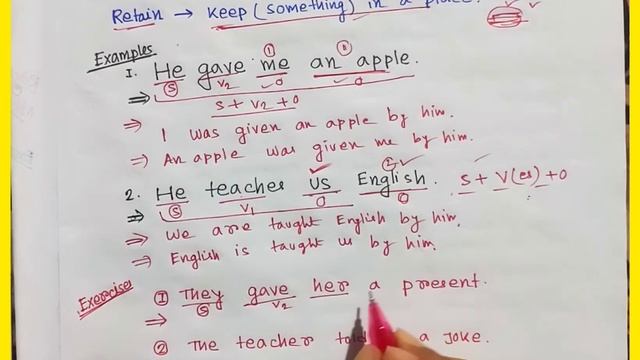 Retain → Keep (something) in a place.
Examples
① ②
1. He gave me an apple.
Ⓢ V₂ O O
⇒ S + V₂ + O
⇒ I was given an apple by him.
⇒ An apple was given me by him.
②
2. He teaches us English. S + V(es) + O
⇒ Ⓢ V₁ O Ⓞ
⇒ We are taught English by him.
⇒ English is taught us by him.
Exercises
① They gave her a present.
Ⓢ V₂
⇒
② The teacher a joke.